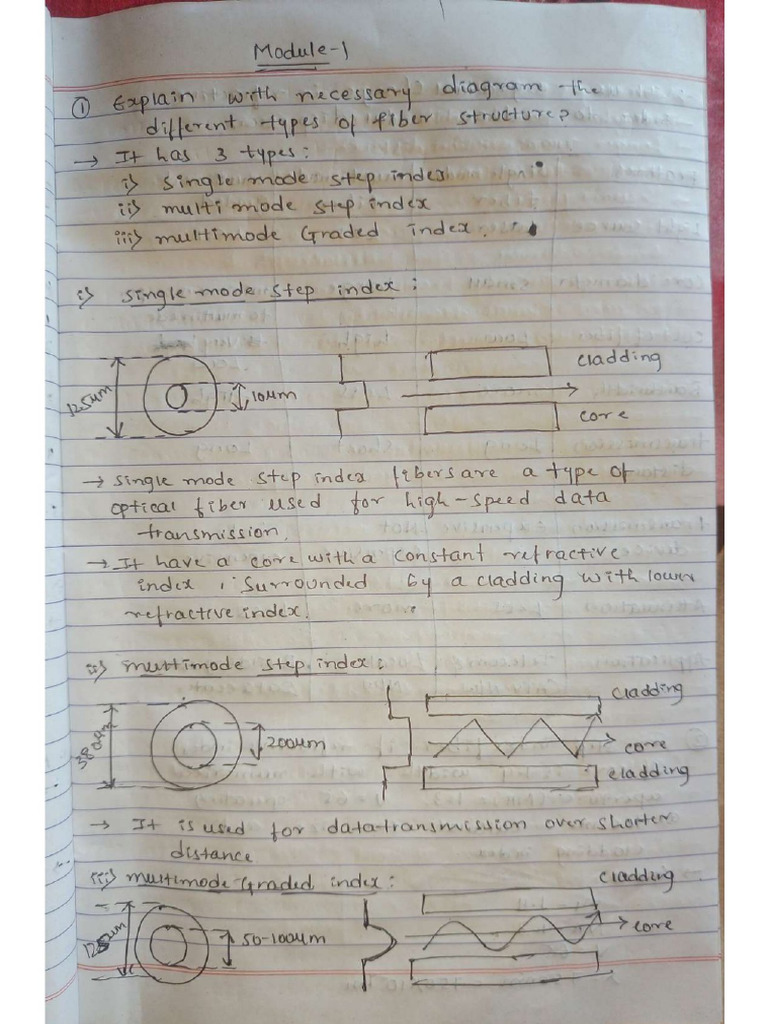 Module-1
① Explain with necessary diagram the
different types of fiber structure?
→ It has 3 types:
i) single mode step index
ii) multi mode step index
iii) multimode Graded index.
i) single mode step index:
125um
10um
cladding
core
→ single mode step index fibers are a type of
optical fiber used for high-speed data
transmission.
→ It have a core with a constant refractive
index, surrounded by a cladding with lower
refractive index.
ii) multimode step index:
380um
200um
cladding
core
cladding
→ It is used for data transmission over shorter
distance
iii) multimode Graded index:
125um
50-100um
cladding
core